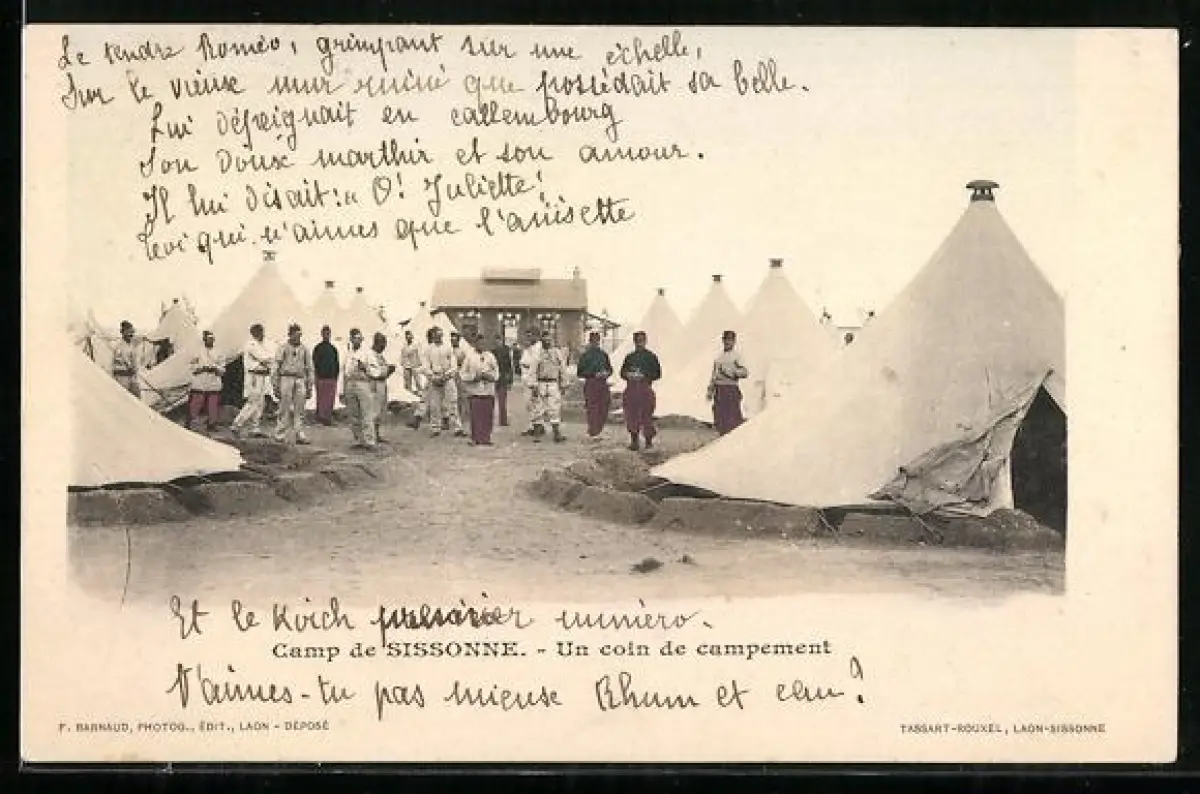 Le tendre Roméo, grimpant sur une échelle,
Sur le vieux mur ruiné que possédait sa belle.
Lui dépeignait en callembourg
Son doux marthir et son amour.
Il lui disait: « O! Juliette!
Toi qui n'aimes que l'anisette
Et le Kirch premier numéro.
Camp de SISSONNE. - Un coin de campement
N'aimes-tu pas mieuse Rhum et eau?
F. BARNAUD, PHOTOG., ÉDIT., LAON - DÉPOSÉ
TASSART-ROUXEL, LAON-SISSONNE